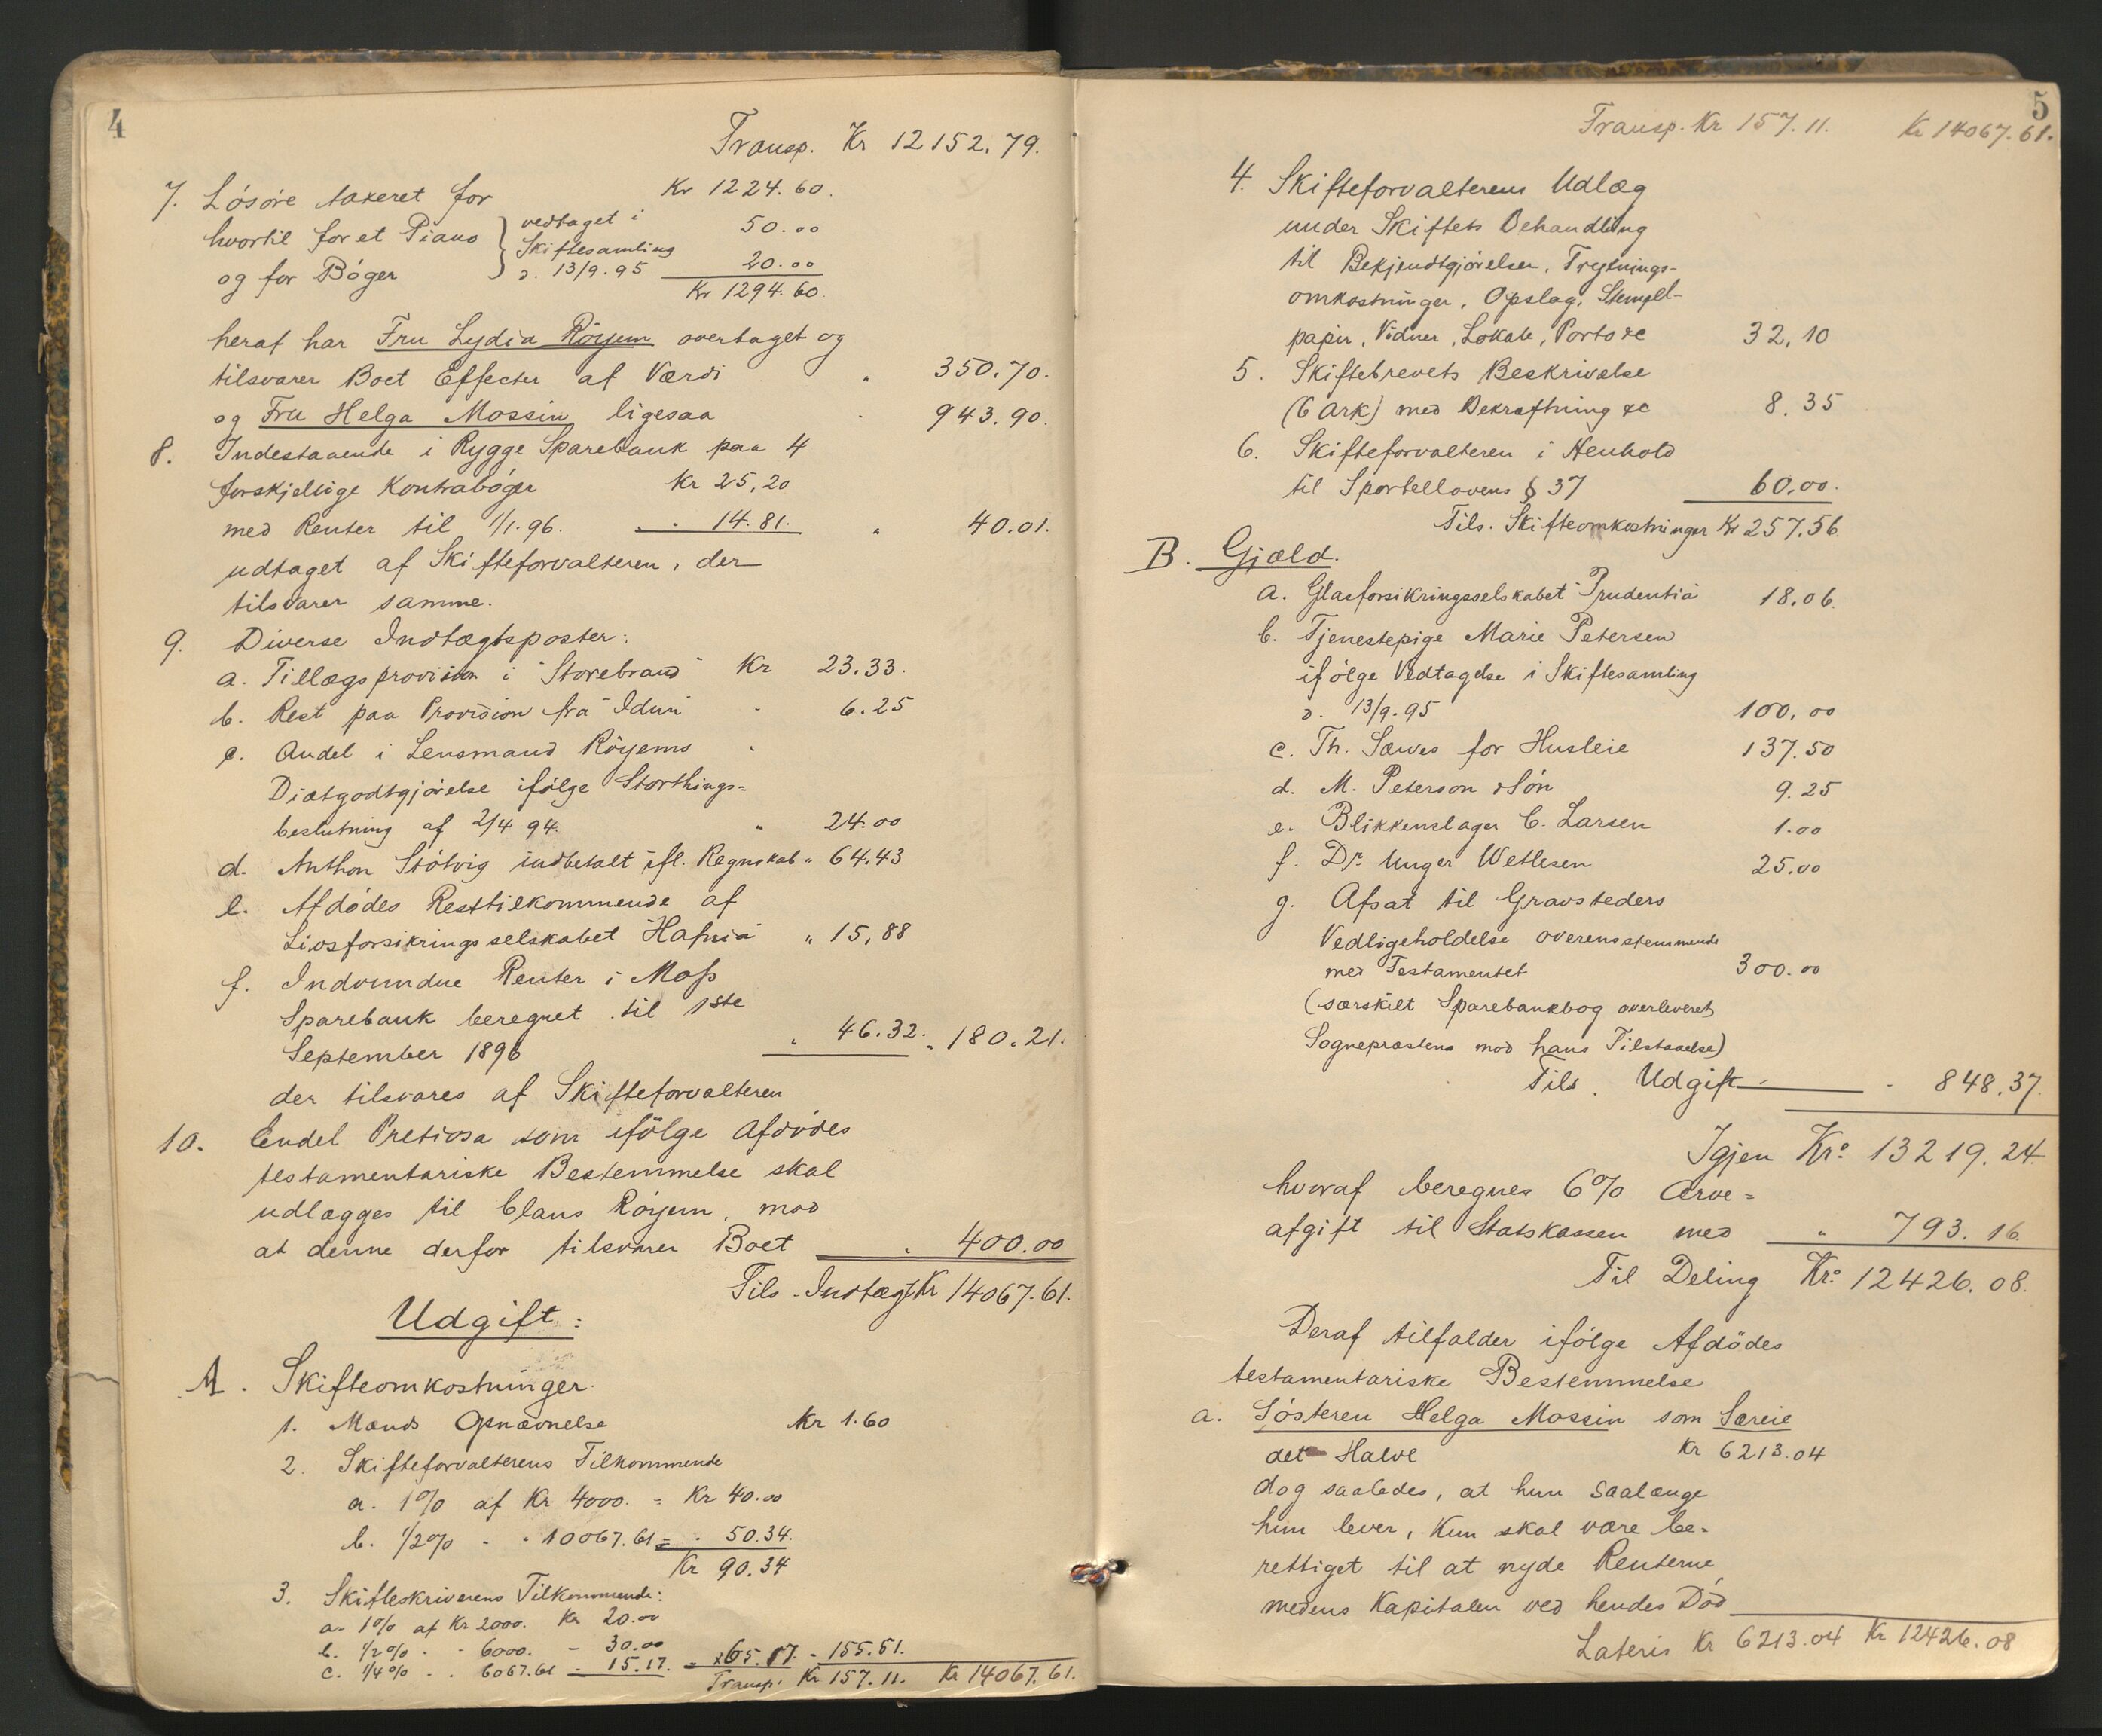 4
Transp. Kr 12152.79.
7. Løsøre taxeret for Kr 1224.60.
hvortil for et Piano } vedtaget i 50.00
og for Bøger } Skiftesamling
d. 13/9.95 20.00
Kr 1294.60.
heraf har Fru Lydia Röyem overtaget og
tilsvarer Boet Effecter af Værdi " 350.70.
og Fru Helga Mossin ligesaa " 943.90.
8. Indestaaende i Rygge Sparebank paa 4
forskjellige Kontrabøger Kr 25,20
med Renter til 1/1.96. " 14.81. " 40.01.
udtaget af Skifteforvalteren, der
tilsvarer samme.
9. Diverse Indtægtsposter:
a. Tillægsprovision i "Storebrand" Kr 23.33.
b. Rest paa Provision fra "Idun" " 6.25
c. Andel i Lensmand Röyems "
Diætgodtgjørelse ifølge Storthings=
beslutning af 2/4 94. " 24.00
d. Anthon Støtvig indbetalt ifl. Regnskab " 64.43
e. Afdødes Resttilkommende af
Livsforsikringsselskabet "Hafnia" " 15,88
f. Indvundne Renter i Moss
Sparebank beregnet til 1ste
September 1896 " 46.32. " 180.21.
der tilsvares af Skifteforvalteren
10. Endel Pretiosa som ifølge Afdødes
testamentariske Bestemmelse skal
udlægges til Claus Röyem, mod
at denne derfor tilsvarer Boet " 400.00
Tils. Indtægt Kr 14067.61.
Udgift:
A. Skifteomkostninger.
1. Mænds Opnævnelse Kr 1.60
2. Skifteforvalterens Tilkommende
a. 1% af Kr 4000. = Kr 40.00
b. 1/2% " " 10067.61 = " 50.34.
Kr 90.34
3. Skifteskriverens Tilkommende:
a. 1% af Kr 2000. Kr 20.00
b. 1/2% " " 6000. - 30.00
c. 1/4% " " 6067.61 - 15.17. = 65.17. - 155.51.
Transp. Kr 157.11. Kr 14067.61.
5
Transp. Kr 157.11. Kr 14067.61.
4. Skifteforvalterens Udlæg
under Skiftets Behandling
til Bekjendtgjørelser, Tryknings-
omkostninger, Opslag, Stempel-
papir, Vidner, Lokale, Porto &c 32,10
5. Skiftebrevets Beskrivelse
(6 Ark) med Bekræftning &c 8.35
6. Skifteforvalteren i Henhold
til Sportellovens § 37 60.00.
Tils. Skifteomkostninger Kr 257.56.
B. Gjæld.
a. Glasforsikringsselskabet "Prudentia" 18.06.
b. Tjenestepige Marie Petersen
ifølge Vedtagelse i Skiftesamling
d. 13/9.95 100,00
c. Th. Sæwes for Husleie 137.50
d. M. Peterson & Søn 9.25
e. Blikkenslager C. Larsen 1.00
f. Dr. Unger Wetlesen 25.00
g. Afsat til Gravsteders
Vedligeholdelse overensstemmende
med Testamentet 300.00
(særskilt Sparebankbog overleveret
Sogneprestens mod hans Tilstaaelse)
Tils. Udgift " 848.37.
Igjen Kr: 13219.24
hvoraf beregnes 6% Arve=
afgift til Statskassen med " 793.16.
Til Deling Kr: 12426.08.
Deraf tilfalder ifølge Afdødes
testamentariske Bestemmelse
a. Søsteren Helga Mossin som Særeie
det Halve Kr 6213.04
dog saaledes, at hun saalænge
hun lever, Kun skal være be-
rettiget til at nyde Renterne,
medens Kapitalen ved hendes Død
Lateris Kr 6213.04 Kr 12426.08